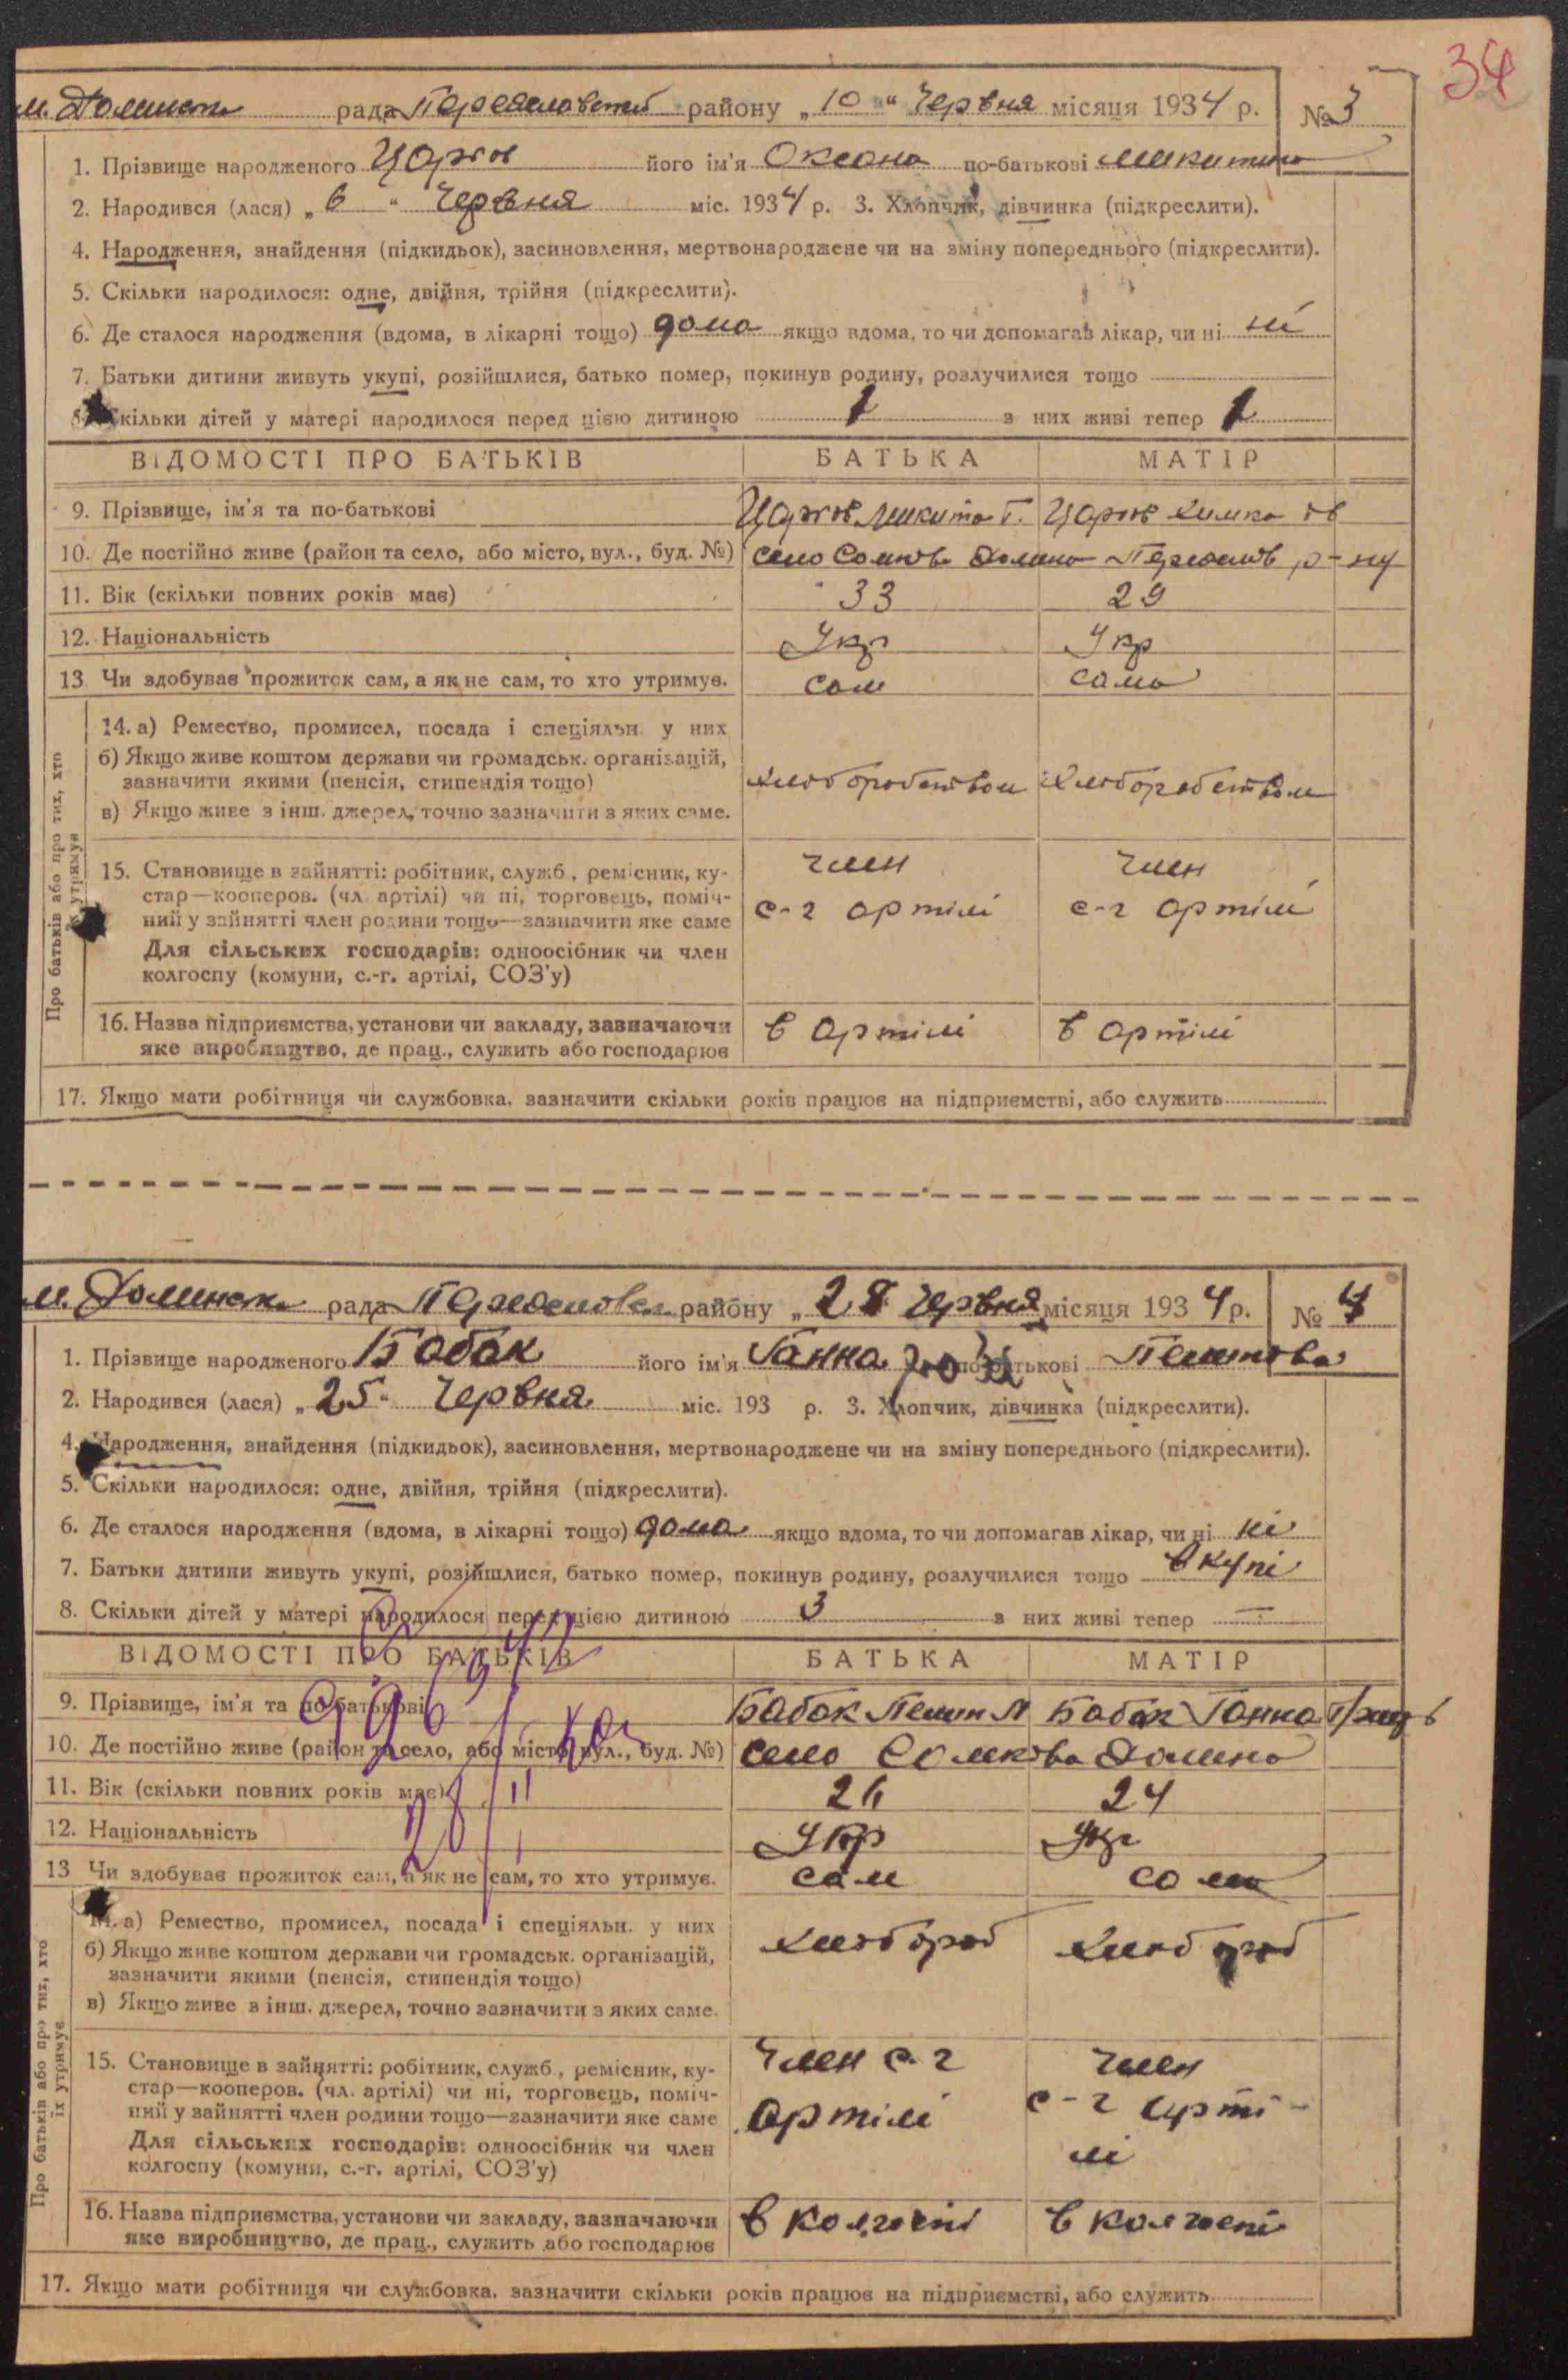 34
рада Переяславський району „10“ Червня місяця 1934 р. № 3
1. Прізвище народженого його ім'я Оксана по-батькові Микитина
2. Народився (лася) „6“ Червня міс. 1934 р. 3. Хлопчик, дівчинка (підкреслити).
4. Народження, знайдення (підкидьок), засиновлення, мертвонароджене чи на зміну попереднього (підкреслити).
5. Скільки народилося: одне, двійня, трійня (підкреслити).
6. Де сталося народження (вдома, в лікарні тощо) дома якщо вдома, то чи допомагав лікар, чи ні ні
7. Батьки дитини живуть укупі, розійшлися, батько помер, покинув родину, розлучилися тощо
Скільки дітей у матері народилося перед цією дитиною 1 з них живі тепер 1
ВІДОМОСТІ ПРО БАТЬКІВ БАТЬКА МАТІР
9. Прізвище, ім'я та по-батькові Микита
10. Де постійно живе (район та село, або місто, вул., буд. №) село Сомкова Долина Переяслів р-ну
11. Вік (скільки повних років має) 33 29
12. Національність Укр Укр
13 Чи здобуває прожиток сам, а як не сам, то хто утримує. сам сама
14. а) Ремество, промисел, посада і спеціяльн. у них
б) Якщо живе коштом держави чи громадськ. організацій,
зазначити якими (пенсія, стипендія тощо) хлоборобством хлоборобством
в) Якщо живе з інш. джерел, точно зазначити з яких саме.
Про батьків або про тих, хто
утримує
15. Становище в зайнятті: робітник, служб., ремісник, ку- член член
стар—кооперов. (чл. артілі) чи ні, торговець, поміч- с-г артілі с-г артілі
ний у зайнятті член родини тощо—зазначити яке саме
Для сільських господарів: одноосібник чи член
колгоспу (комуни, с.-г. артілі, СОЗ'у)
16. Назва підприємства, установи чи закладу, зазначаючи в артілі в артілі
яке виробництво, де прац., служить або господарює
17. Якщо мати робітниця чи службовка, зазначити скільки років працює на підприємстві, або служить
рада району „28 Червня місяця 1934 р. № 4
1. Прізвище народженого Бабак його ім'я Ганна по-батькові
2. Народився (лася) „25“ Червня міс. 193 р. 3. Хлопчик, дівчинка (підкреслити).
4. Народження, знайдення (підкидьок), засиновлення, мертвонароджене чи на зміну попереднього (підкреслити).
5. Скільки народилося: одне, двійня, трійня (підкреслити).
6. Де сталося народження (вдома, в лікарні тощо) дома якщо вдома, то чи допомагав лікар, чи ні ні
7. Батьки дитини живуть укупі, розійшлися, батько помер, покинув родину, розлучилися тощо вкупі
8. Скільки дітей у матері народилося перед цією дитиною 3 з них живі тепер —
ВІДОМОСТІ ПРО БАТЬКІВ БАТЬКА МАТІР
9. Прізвище, ім'я та по-батькові Бабак Бабак Ганна
10. Де постійно живе (район та село, або місто, вул., буд. №) село Сомкова Долина
11. Вік (скільки повних років має) 26 24
12. Національність Укр Укр
13 Чи здобуває прожиток сам, а як не сам, то хто утримує. сам сама
14. а) Ремество, промисел, посада і спеціяльн. у них хлобороб хлобороб
б) Якщо живе коштом держави чи громадськ. організацій,
зазначити якими (пенсія, стипендія тощо)
в) Якщо живе з інш. джерел, точно зазначити з яких саме.
Про батьків або про тих, хто
їх утримує
15. Становище в зайнятті: робітник, служб., ремісник, ку- член с-г член
стар—кооперов. (чл. артілі) чи ні, торговець, поміч- артілі с-г арті-
ний у зайнятті член родини тощо—зазначити яке саме лі
Для сільських господарів: одноосібник чи член
колгоспу (комуни, с.-г. артілі, СОЗ'у)
16. Назва підприємства, установи чи закладу, зазначаючи в колгоспі в колгоспі
яке виробництво, де прац., служить або господарює
17. Якщо мати робітниця чи службовка, зазначити скільки років працює на підприємстві, або служить